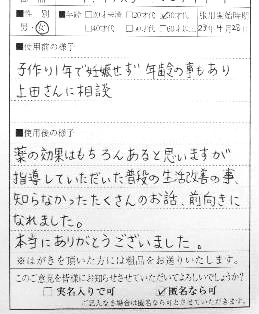 ■性 別 ■年齢 □20才未満 □20才代 ☑30才代 服用開始時期
男・女 □40才代 □50才代 □60才以上 29年4月28日
■使用前の様子
子作り1年で妊娠せず 年齢の事もあり
上田さんに相談
■使用後の様子
薬の効果はもちろんあると思いますが
指導していただいた普段の生活改善の事、
知らなかったたくさんのお話、前向きに
なれました。
本当にありがとうございました。
※はがきを頂いた方には粗品をお送りいたします。
このご意見を皆様にお知らせさせていただいてよろしいでしょうか?
□実名入りで可 ☑匿名なら可
ご記入なき場合は匿名なら可とさせていただきます。